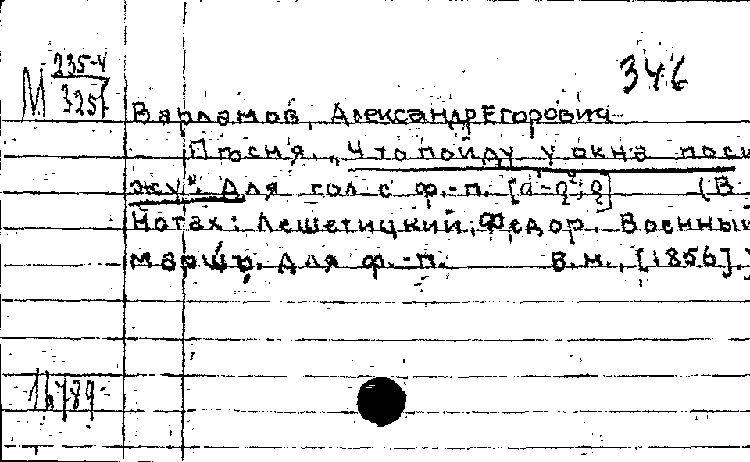 346
М 235-4
325
Варламов, Александр Егорович
Пѣсня. „Что пойду у окна поси
жу". Для гол. с ф.-п. (В
Нотах: Лешетицкий, Федор. Военный
маршъ. Для ф.-п. Б.М., [1856].)
16789